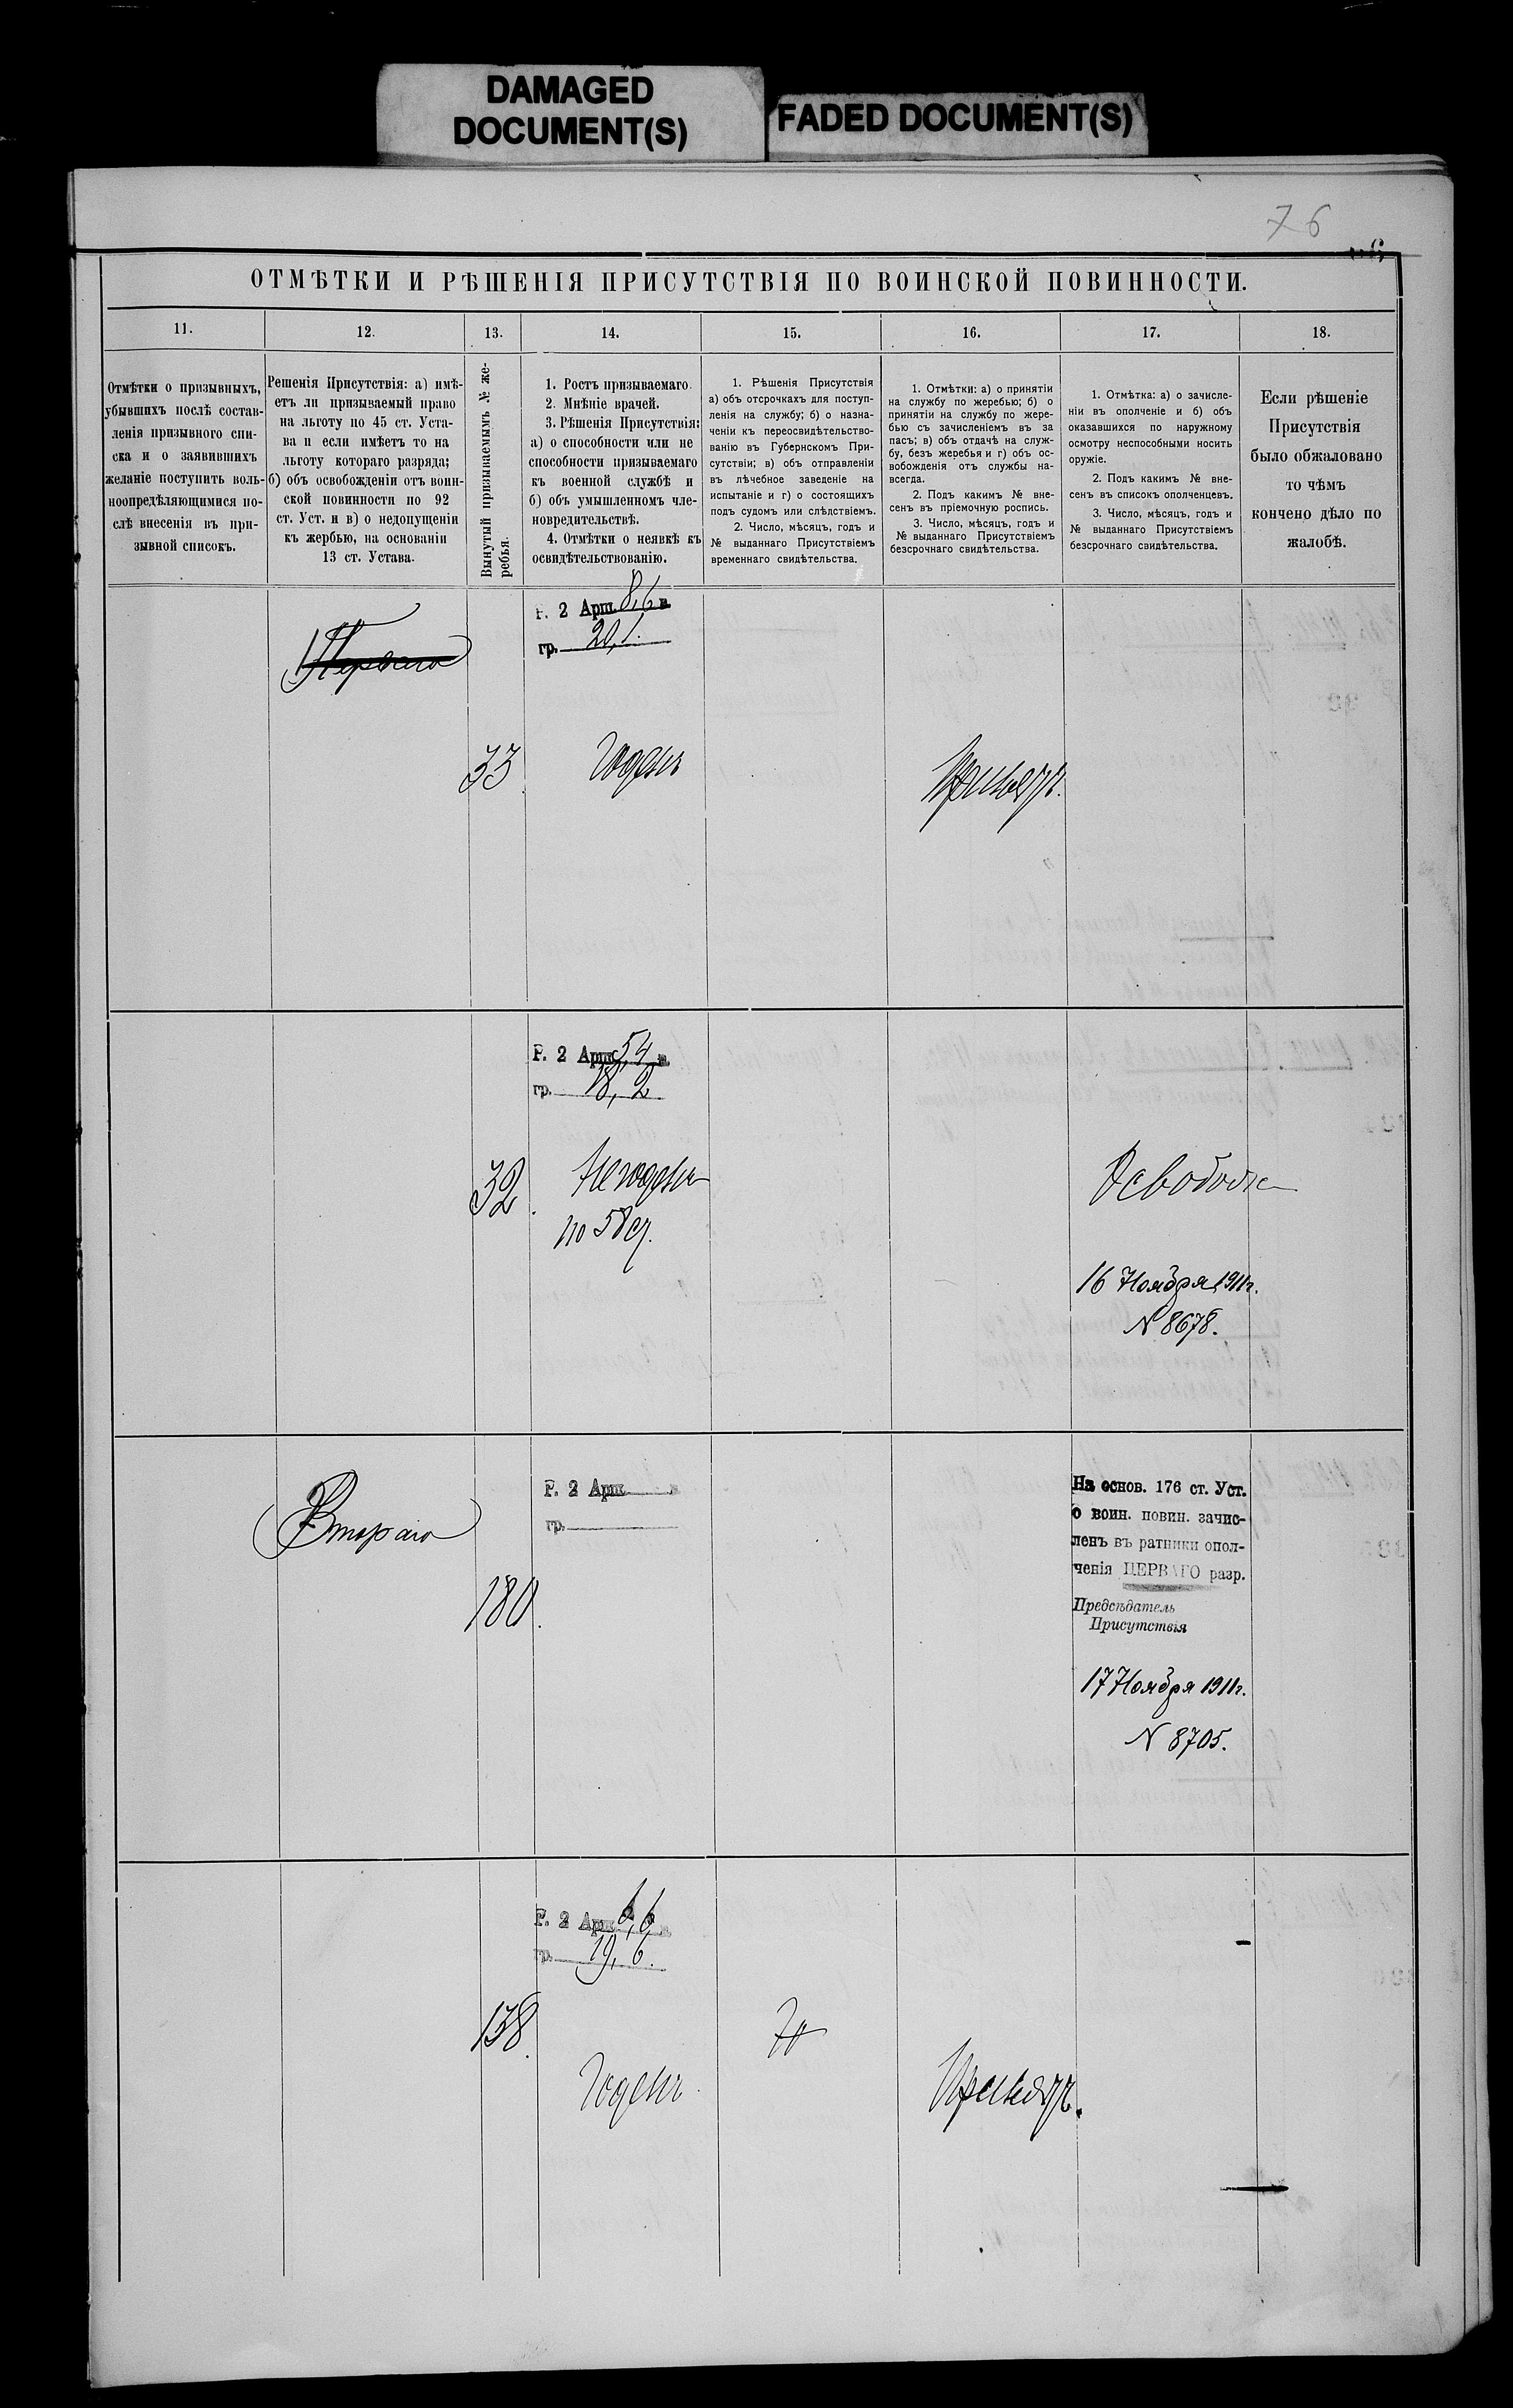 DAMAGED
DOCUMENT(S)
FADED DOCUMENT(S)
76
ОТМѢТКИ И РѢШЕНІЯ ПРИСУТСТВІЯ ПО ВОИНСКОЙ ПОВИННОСТИ.
11.
12.
13.
14.
15.
16.
17.
18.
Отмѣтки о призывныхъ,
убывшихъ послѣ состав-
ленія призывного спи-
ска и о заявившихъ
желаніе поступить воль-
ноопредѣляющимися по-
слѣ внесенія въ при-
зывной списокъ.
Решенія Присутствія: а) имѣ-
етъ ли призываемый право
на льготу по 45 ст. Уста-
ва и если имѣетъ то на
льготу котораго разряда;
б) объ освобожденіи отъ воин-
ской повинности по 92
ст. Уст. и в) о недопущеніи
къ жербью, на основаніи
13 ст. Устава.
Вынутый призываемымъ № же-
ребья.
1. Ростъ призываемаго.
2. Мнѣніе врачей.
3. Рѣшенія Присутствія:
а) о способности или не
способности призываемаго
къ военной службѣ и
б) объ умышленномъ чле-
новредительствѣ.
4. Отмѣтки о неявкѣ къ
освидѣтельствованію.
1. Рѣшенія Присутствія
а) объ отсрочкахъ для поступ-
ленія на службу; б) о назна-
ченіи къ переосвидѣтельство-
ванію въ Губернскомъ При-
сутствіи; в) объ отправленіи
въ лѣчебное заведеніе на
испытаніе и г) о состоящихъ
подъ судомъ или слѣдствіемъ.
2. Число, мѣсяцъ, годъ и
№ выданнаго Присутствіемъ
временнаго свидѣтельства.
1. Отмѣтки: а) о принятіи
на службу по жеребью; б) о
принятіи на службу по жере-
бью съ зачисленіемъ въ за
пасъ; в) объ отдачѣ на служ-
бу, безъ жеребья и г) объ ос-
вобожденія отъ службы на-
всегда.
2. Подъ какимъ № вне-
сенъ въ пріемочную роспись.
3. Число, мѣсяцъ, годъ и
№ выданнаго Присутствіемъ
безсрочнаго свидѣтельства.
1. Отмѣтка: а) о зачисле-
ніи въ ополченіе и б) объ
оказавшихся по наружному
осмотру неспособными носить
оружіе.
2. Подъ какимъ № вне-
сенъ въ списокъ ополченцевъ.
3. Число, мѣсяцъ, годъ и
№ выданнаго Присутствіемъ
безсрочнаго свидѣтельства.
Если рѣшеніе
Присутствія
было обжаловано
то чѣмъ
кончено дѣло по
жалобѣ.
Р. 2 Арш. 8,6 в.
гр. 20,1.
Перваго
33
Годенъ
Принятъ.
Р. 2 Арш. 5,4 в.
гр. 18,2
32.
Негоденъ
по 58 ст.
Освобожд
16 Ноября 1911г.
N 8678.
Втораго
180.
Р. 2 Арш. в.
гр.
На основ. 176 ст. Уст.
о воин. повин. зачис-
ленъ въ ратники опол-
ченія ПЕРВАГО разр.
Предсѣдатель
Присутствія
17 Ноября 1911г.
N 8705.
Р. 2 Арш. 6,6 в.
гр. 19,6.
138.
Годенъ
Принятъ.